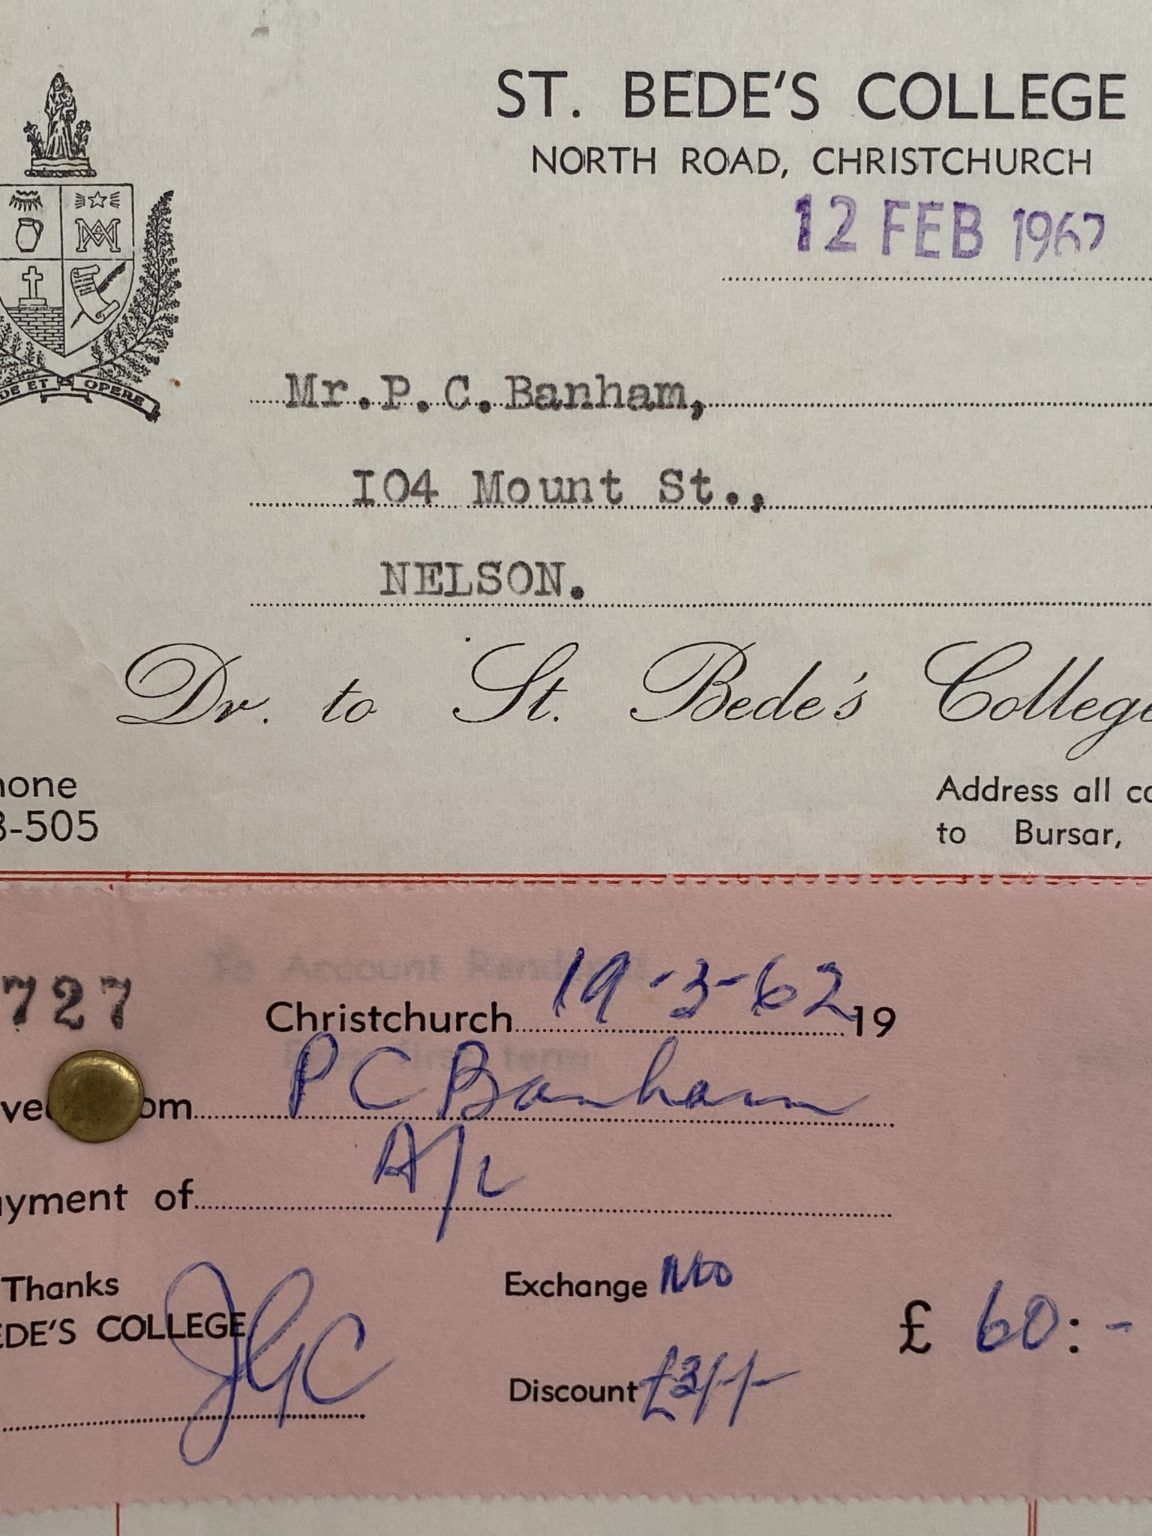 ST. BEDE'S COLLEGE
NORTH ROAD, CHRISTCHURCH
12 FEB 1962
DE ET OPERE
Mr.P.C.Banham,
I04 Mount St.,
NELSON.
Dr. to St. Bede's College
hone
3-505
Address all co
to Bursar,
To Account Rendered
727
Christchurch 19-3-62 19
ve om P C Banham
yment of A/c
Thanks
EDE'S COLLEGE
JGC
Exchange
£ 60:-
Discount